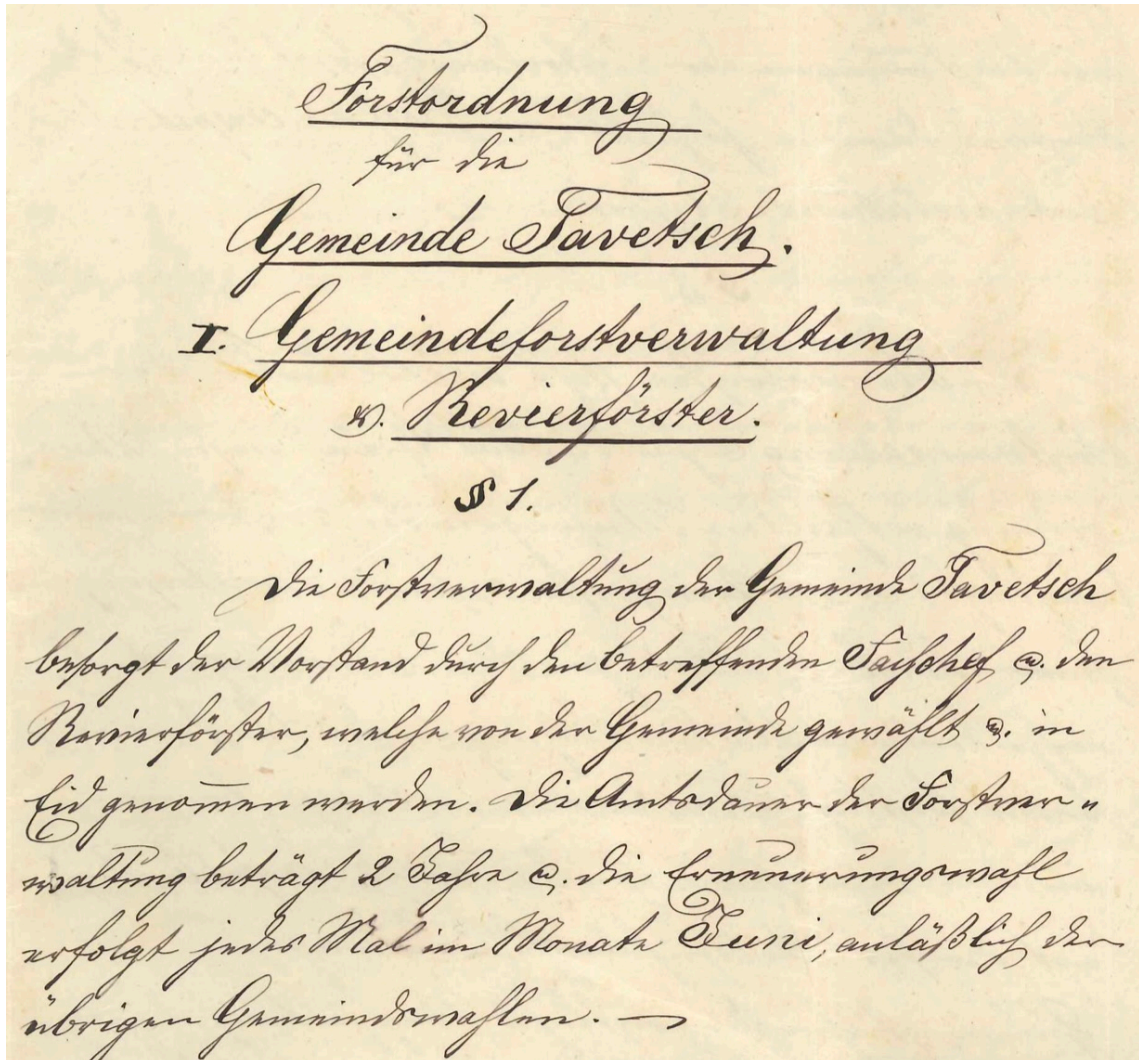 Forstordnung
für die
Gemeinde Tavetsch.
I. Gemeindeforstverwaltung
u. Revierförster.
§ 1.
Die Forstverwaltung der Gemeinde Tavetsch
besorgt der Vorstand durch den betreffenden Fachchef u. den
Revierförster, welche von der Gemeinde gewählt u. in
Eid genom̅en werden. Die Amtsdauer der Forstver„
waltung beträgt 2 Jahre u. die Erneuerungswahl
erfolgt jedes Mal im Monate Juni, anläßlich der
übrigen Gemeindswahlen. —